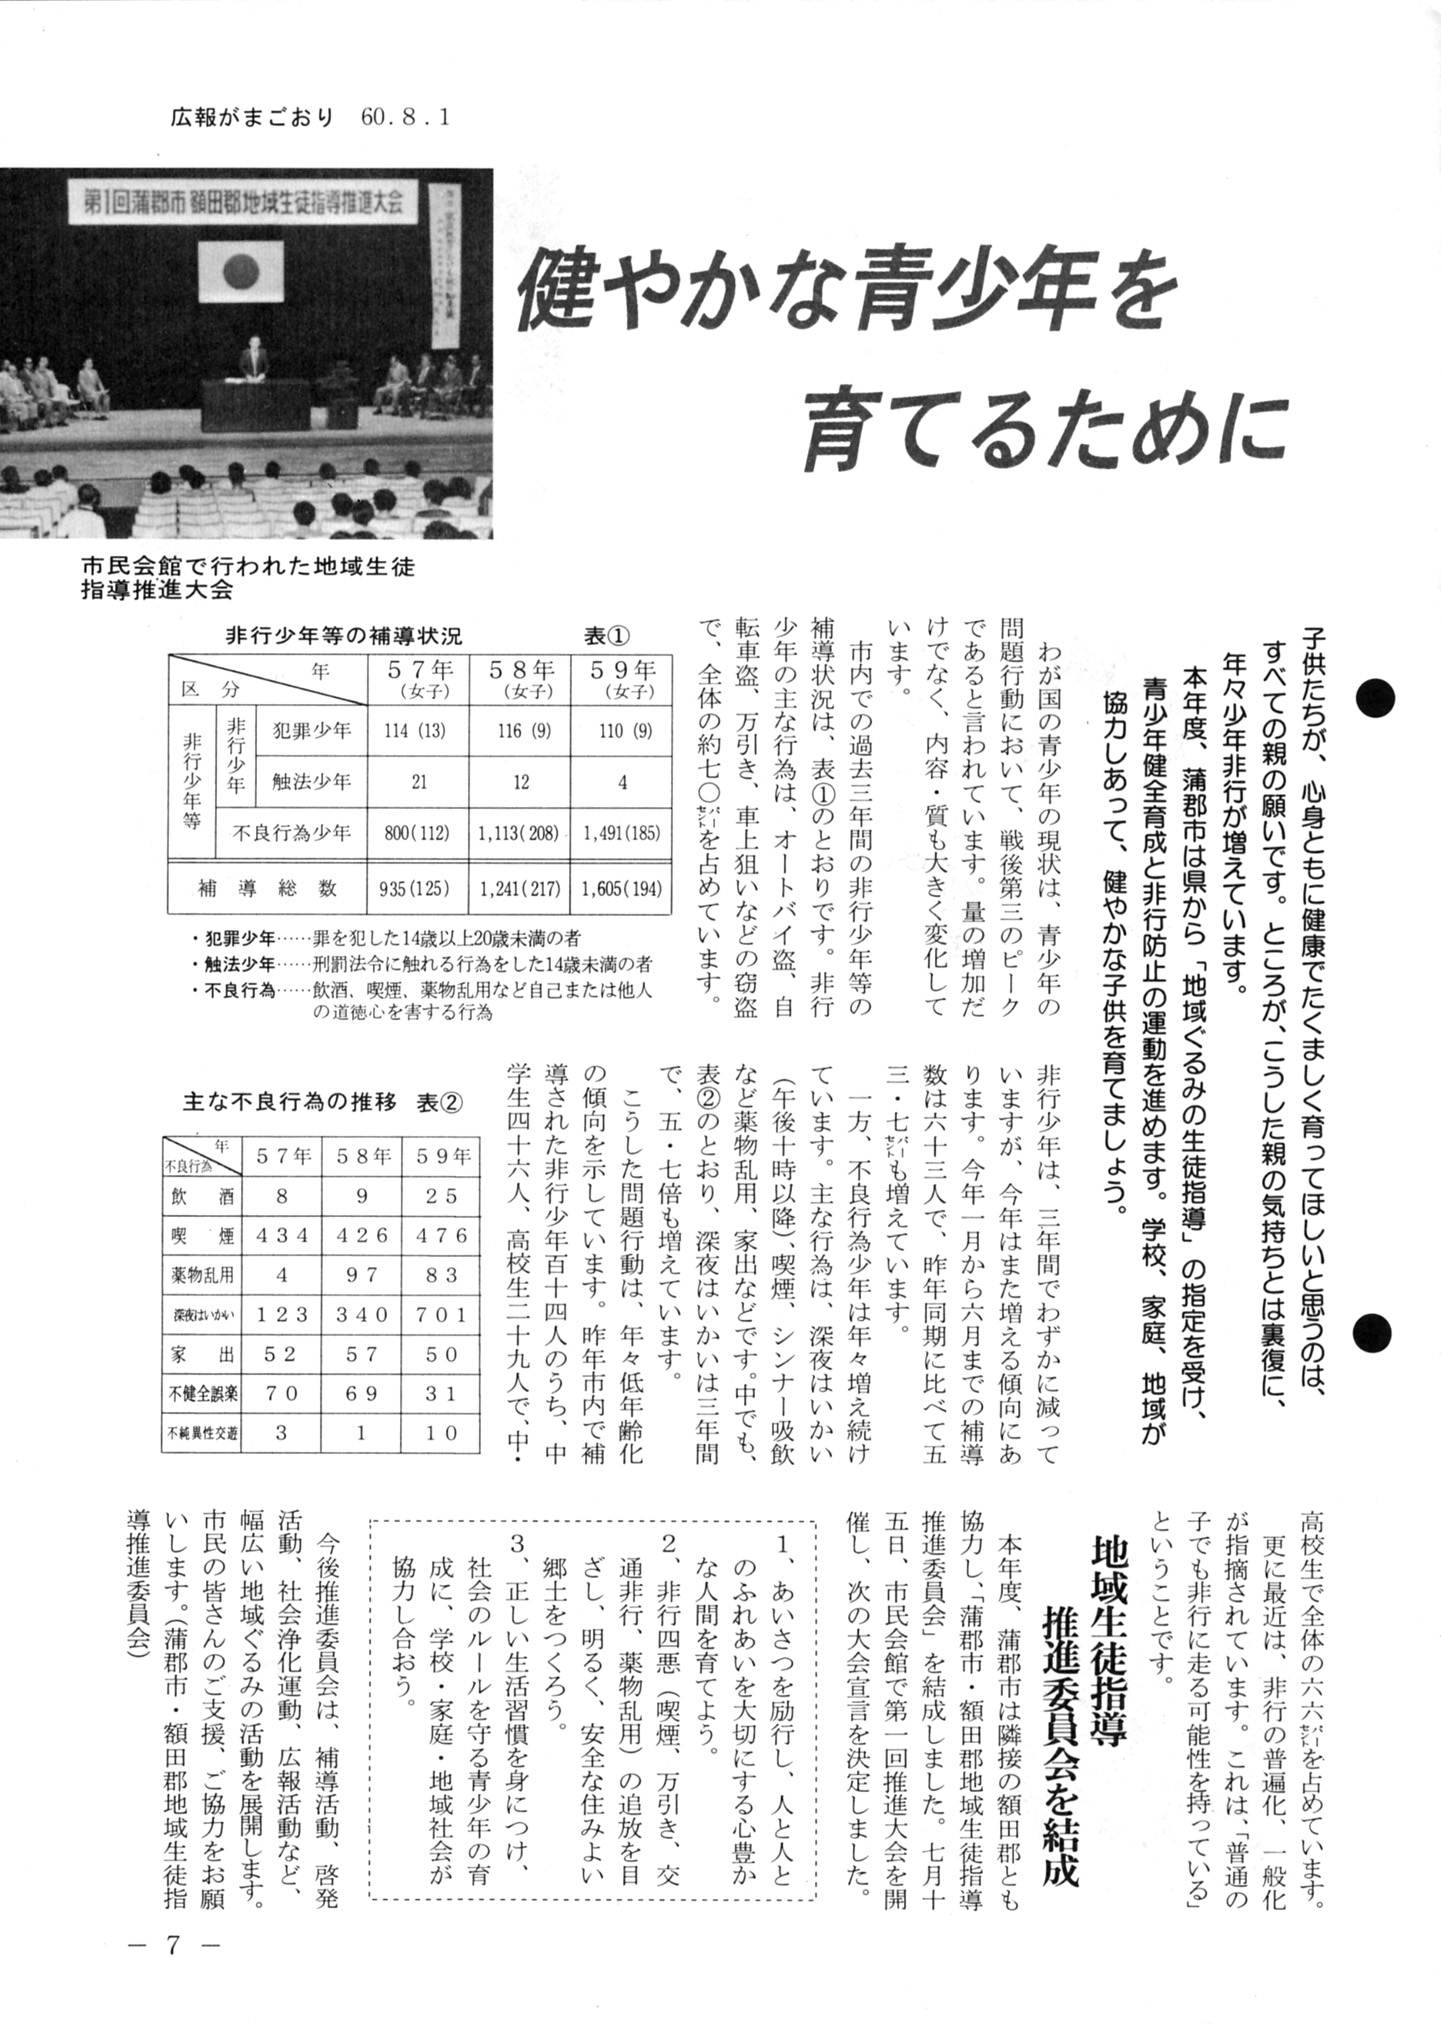 広報がまごおり 60.8.1
第1回蒲郡市 額田郡地域生徒指導推進大会
健やかな青少年を
育てるために
市民会館で行われた地域生徒
指導推進大会
子供たちが、心身ともに健康でたくましく育ってほしいと思うのは、
すべての親の願いです。ところが、こうした親の気持ちとは裏復に、
年々少年非行が増えています。
本年度、蒲郡市は県から「地域ぐるみの生徒指導」の指定を受け、
青少年健全育成と非行防止の運動を進めます。学校、家庭、地域が
協力しあって、健やかな子供を育てましょう。
わが国の青少年の現状は、青少年の
問題行動において、戦後第三のピーク
であると言われています。量の増加だ
けでなく、内容・質も大きく変化して
います。
市内での過去三年間の非行少年等の
補導状況は、表①のとおりです。非行
少年の主な行為は、オートバイ盗、自
転車盗、万引き、車上狙いなどの窃盗
で、全体の約七〇パーセントを占めています。
非行少年等の補導状況 表①
年 区分 57年(女子) 58年(女子) 59年(女子)
非行少年等 非行少年 犯罪少年 114(13) 116(9) 110(9)
触法少年 21 12 4
不良行為少年 800(112) 1,113(208) 1,491(185)
補導総数 935(125) 1,241(217) 1,605(194)
・犯罪少年……罪を犯した14歳以上20歳未満の者
・触法少年……刑罰法令に触れる行為をした14歳未満の者
・不良行為……飲酒、喫煙、薬物乱用など自己または他人
の道徳心を害する行為
非行少年は、三年間でわずかに減って
いますが、今年はまた増える傾向にあ
ります。今年一月から六月までの補導
数は六十三人で、昨年同期に比べて五
三・七パーセントも増えています。
一方、不良行為少年は年々増え続け
ています。主な行為は、深夜はいかい
(午後十時以降)、喫煙、シンナー吸飲
など薬物乱用、家出などです。中でも、
表②のとおり、深夜はいかいは三年間
で、五・七倍も増えています。
こうした問題行動は、年々低年齢化
の傾向を示しています。昨年市内で補
導された非行少年百十四人のうち、中
学生四十六人、高校生二十九人で、中・
主な不良行為の推移 表②
年 不良行為 57年 58年 59年
飲酒 8 9 25
喫煙 434 426 476
薬物乱用 4 97 83
深夜はいかい 123 340 701
家出 52 57 50
不健全誤楽 70 69 31
不純異性交遊 3 1 10
高校生で全体の六六パーセントを占めています。
更に最近は、非行の普遍化、一般化
が指摘されています。これは、「普通の
子でも非行に走る可能性を持っている」
ということです。
地域生徒指導
推進委員会を結成
本年度、蒲郡市は隣接の額田郡とも
協力し、「蒲郡市・額田郡地域生徒指導
推進委員会」を結成しました。七月十
五日、市民会館で第一回推進大会を開
催し、次の大会宣言を決定しました。
1、あいさつを励行し、人と人と
のふれあいを大切にする心豊か
な人間を育てよう。
2、非行四悪(喫煙、万引き、交
通非行、薬物乱用)の追放を目
ざし、明るく、安全な住みよい
郷土をつくろう。
3、正しい生活習慣を身につけ、
社会のルールを守る青少年の育
成に、学校・家庭・地域社会が
協力し合おう。
今後推進委員会は、補導活動、啓発
活動、社会浄化運動、広報活動など、
幅広い地域ぐるみの活動を展開します。
市民の皆さんのご支援、ご協力をお願
いします。(蒲郡市・額田郡地域生徒指
導推進委員会)
— 7 —